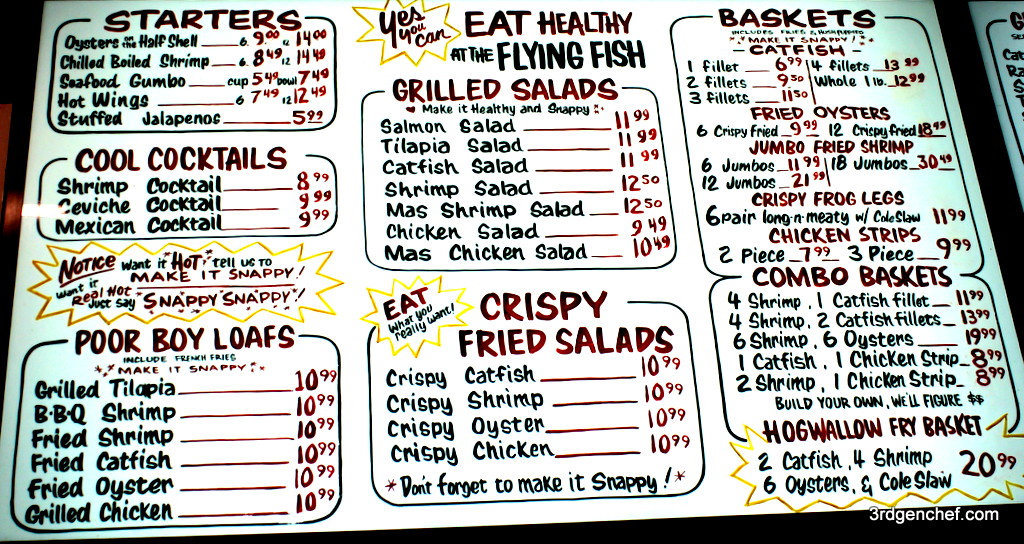 STARTERS
Oysters on the Half Shell 6. 9.00 12. 14.00
Chilled Boiled Shrimp 6. 8.49 12. 14.49
Seafood Gumbo cup 5.49 bowl 7.49
Hot Wings 6 7.49 12 12.49
Stuffed Jalapenos 5.99
COOL COCKTAILS
Shrimp Cocktail 8.99
Ceviche Cocktail 9.99
Mexican Cocktail 9.99
NOTICE want it "HOT" tell us to
MAKE IT SNAPPY!
want it Real Hot
Just say "SNAPPY SNAPPY"!
POOR BOY LOAFS
INCLUDE FRENCH FRIES
MAKE IT SNAPPY
Grilled Tilapia 10.99
B-B-Q Shrimp 10.99
Fried Shrimp 10.99
Fried Catfish 10.99
Fried Oyster 10.99
Grilled Chicken 10.99
Yes you can
EAT HEALTHY
AT THE FLYING FISH
GRILLED SALADS
Make it Healthy and Snappy
Salmon Salad 11.99
Tilapia Salad 11.99
Catfish Salad 11.99
Shrimp Salad 12.50
Mas Shrimp Salad 12.50
Chicken Salad 9.49
Mas Chicken Salad 10.49
EAT What you really want!
CRISPY
FRIED SALADS
Crispy Catfish 10.99
Crispy Shrimp 10.99
Crispy Oyster 10.99
Crispy Chicken 10.99
*Don't forget to make it Snappy!*
BASKETS
INCLUDES FRIES & HUSHPUPPIES
MAKE IT SNAPPY!
CATFISH
1 fillet 6.99 4 fillets 13.99
2 fillets 9.50 Whole 1 lb. 12.99
3 fillets 11.50
FRIED OYSTERS
6 Crispy Fried 9.99 12 Crispy Fried 18.49
JUMBO FRIED SHRIMP
6 Jumbos 11.99 18 Jumbos 30.49
12 Jumbos 21.99
CRISPY FROG LEGS
6 pair long-n-meaty w/ Cole Slaw 11.99
CHICKEN STRIPS
2 Piece 7.99 3 Piece 9.99
COMBO BASKETS
4 Shrimp, 1 Catfish fillet 11.99
4 Shrimp, 2 Catfish fillets 13.99
6 Shrimp, 6 Oysters 19.99
1 Catfish, 1 Chicken Strip 8.99
2 Shrimp, 1 Chicken Strip 8.99
BUILD YOUR OWN, WE'LL FIGURE $$
HOGWALLOW FRY BASKET
2 Catfish, 4 Shrimp
6 Oysters, & Cole Slaw 20.99
3rdgenchef.com